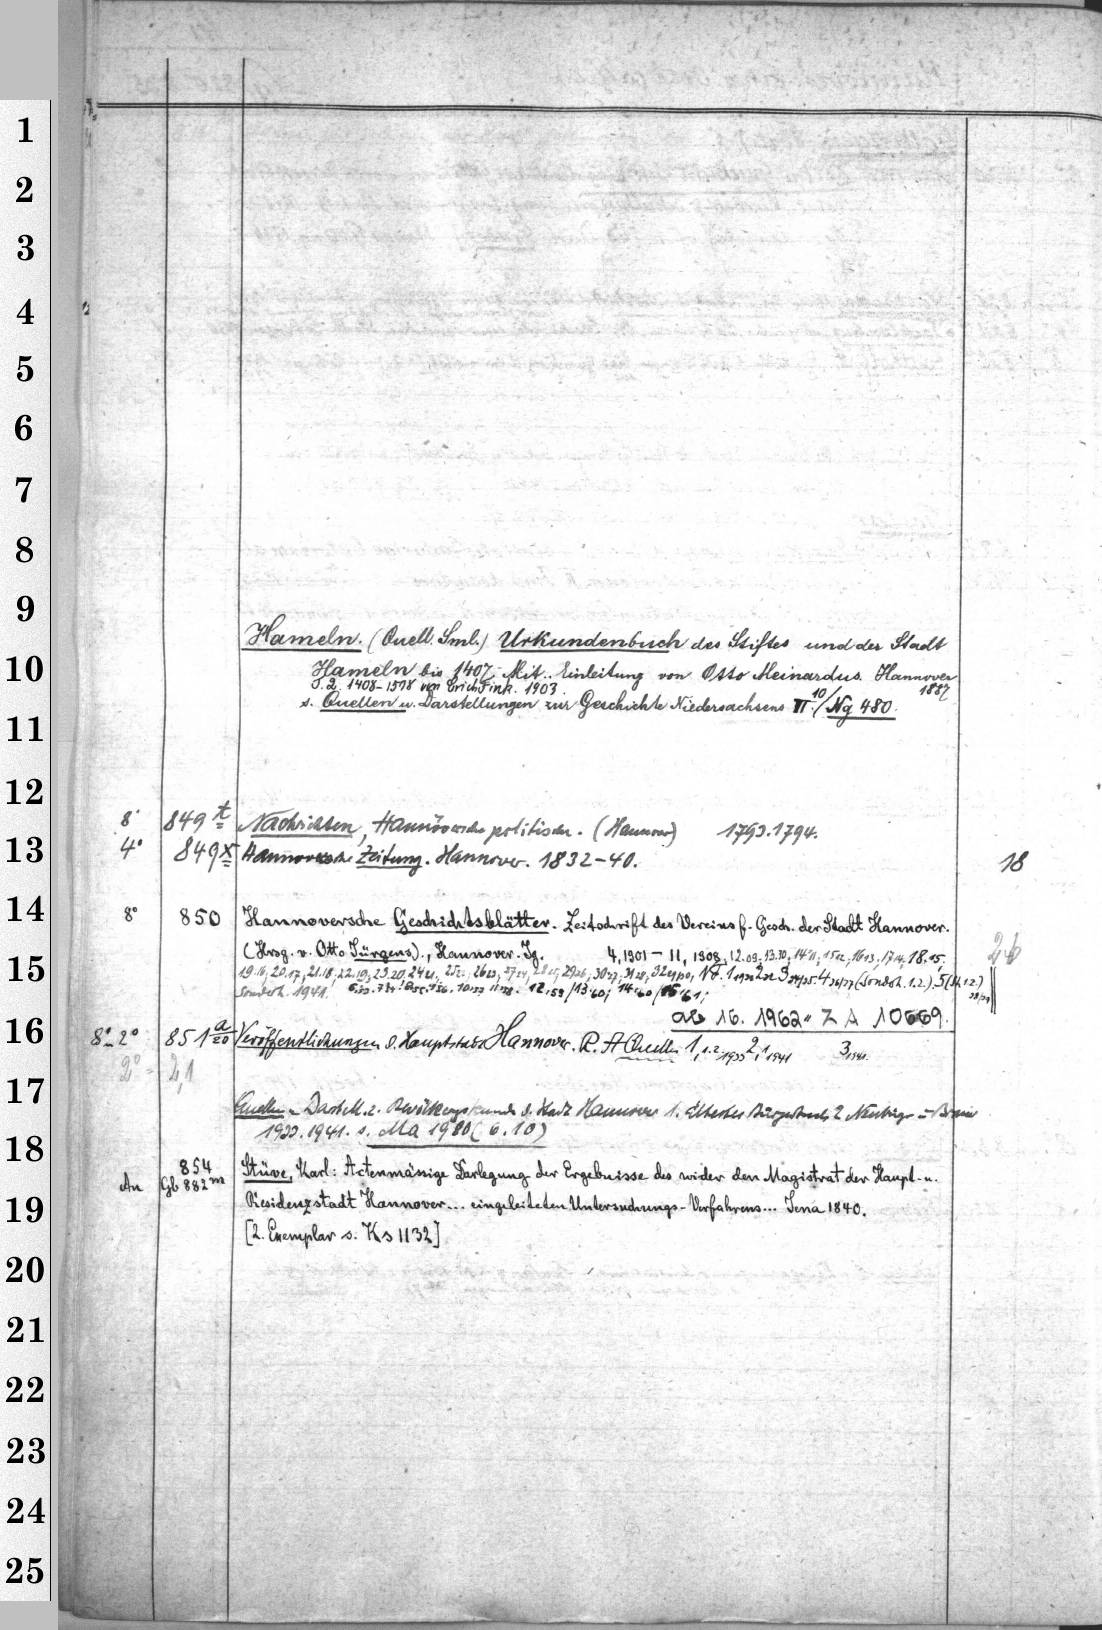 1
2
3
4
5
6
7
8
9
Hameln. (Quell. Sml.) Urkundenbuch des Stiftes und der Stadt
10
Hameln bis 1407. Mit. Einleitung von Otto Meinardus. Hannover 1887
T. 2. 1408-1578 von Erich Fink. 1903.
s. Quellen u. Darstellungen zur Geschichte Niedersachsens 10/Ng 480.
11
12
8° 849 t Nachrichten, Hannöversche politische. (Hannover) 1793.1794.
13
4° 849 x Hannoversche Zeitung. Hannover. 1832-40. 18
14
8° 850 Hannoversche Geschichtsblätter. Zeitschrift des Vereins f. Gesch. der Stadt Hannover.
(Hrsg. v. Otto Jürgens)., Hannover. Jg. 4,1901 - 11, 1908, 12.09; 13.10; 14.11; 15.12; 16.13; 17.14; 18.15.
15
19.16; 20.17; 21.18; 22.19; 23.20; 24.21, 26.23;
Sonderh. 1941. 12.59/13.60; 14.60/15.61;
ab 16. 1962 = Z A 10669.
16
8°-2° 851 a/20 Veröffentlichungen d. Hauptstadt Hannover. R. A Quellen 1, 1.2. 1939 2, 1 1941 3 1941.
2° - 2,1
17
Quellen u. Darstell. z. Bevölkerungskunde d. Stadt Hannover 1. Ältestes Bürgerbuch 2 Neubürger u.
1939.1941. s. Ma 1980 (6.10)
18
An 854 Gb 882 m Stüve, Karl: Actenmässige Darlegung der Ergebnisse des wider den Magistrat der Haupt- u.
19
Residenzstadt Hannover... eingeleiteten Untersuchungs-Verfahrens... Jena 1840.
[2. Exemplar s. Ks 1132]
20
21
22
23
24
25